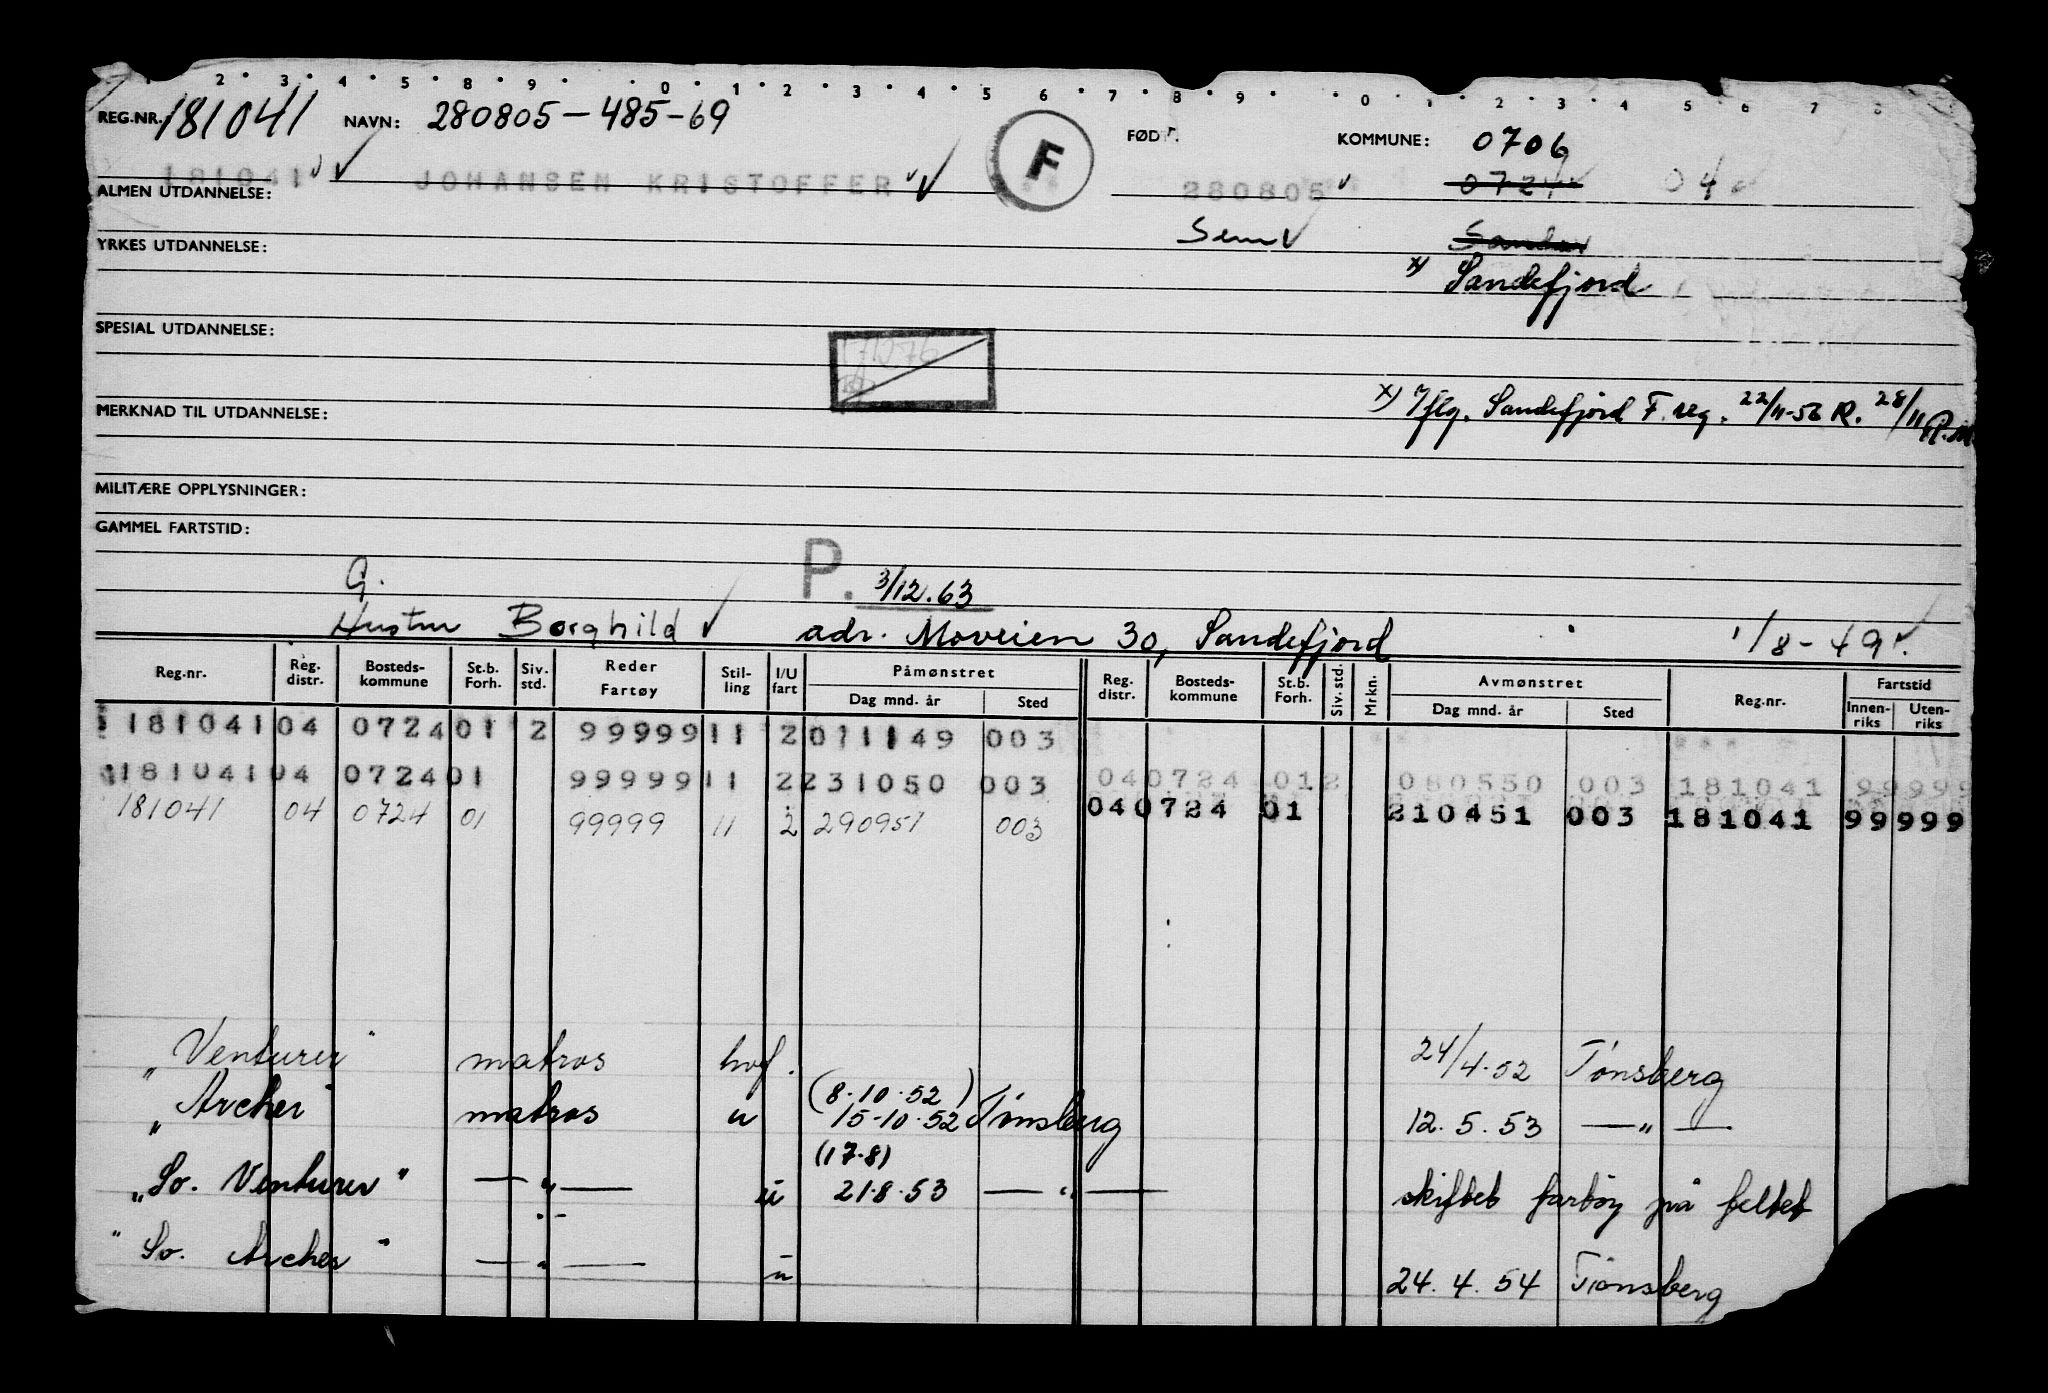 2 3 4 5 8 9 0 1 2 3 4 5 6 7 8 9 0 1 2 3 4 5 6 7 8
REG.NR. 181041 NAVN: 280805-485-69 F FØDT. KOMMUNE: 0706
181041 JOHANSEN KRISTOFFER 280805 0724 04
ALMEN UTDANNELSE:
Sem Sandar
YRKES UTDANNELSE:
x) Sandefjord
SPESIAL UTDANNELSE:
x) Iflg. Sandefjord F. reg. 22/11-56 R. 28/11 P.M
MERKNAD TIL UTDANNELSE:
MILITÆRE OPPLYSNINGER:
GAMMEL FARTSTID:
G. P. 3/12.63
Hustru Borghild adr. Moveien 30, Sandefjord 1/8-49
Reg.nr. Reg. distr. Bosteds-kommune St.b. Forh. Siv. std. Reder Fartøy Stil-ling I/U fart Påmønstret Dag mnd. år Sted Reg. distr. Bosteds-kommune St.b. Forh. Siv. std. Mrkn. Avmønstret Dag mnd. år Sted Reg.nr. Fartstid Innen-riks Uten-riks
181041 04 0724 01 2 99999 11 2 011149 003
181041 04 0724 01 99999 11 2 231050 003 04 0724 01 2 080550 003 181041 99999
181041 04 0724 01 99999 11 2 290951 003 04 0724 01 210451 003 181041 99999
"Venturer" matros hvf. 24/4.52 Tønsberg
"Archer" matros u (8.10.52) 15-10.52 Tønsberg 12.5.53 — " —
(17.8)
"So. Venturer" — " — u 21.8.53 — " — skiftet fartøy på feltet
"So. Archer" — " — u 24.4.54 Tønsberg